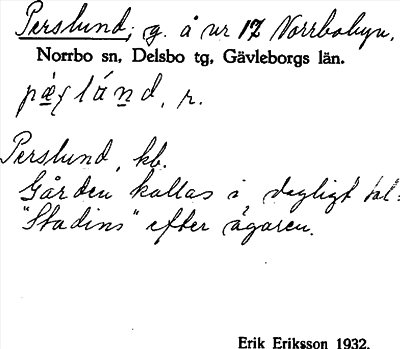 Perslund, g. å nr 17 Norrbobyn,
Norrbo sn, Delsbo tg, Gävleborgs län.
r.
Perslund, kb.
Gården kallas i dagligt tal
"Stadins" efter ägaren.
Erik Eriksson 1932.